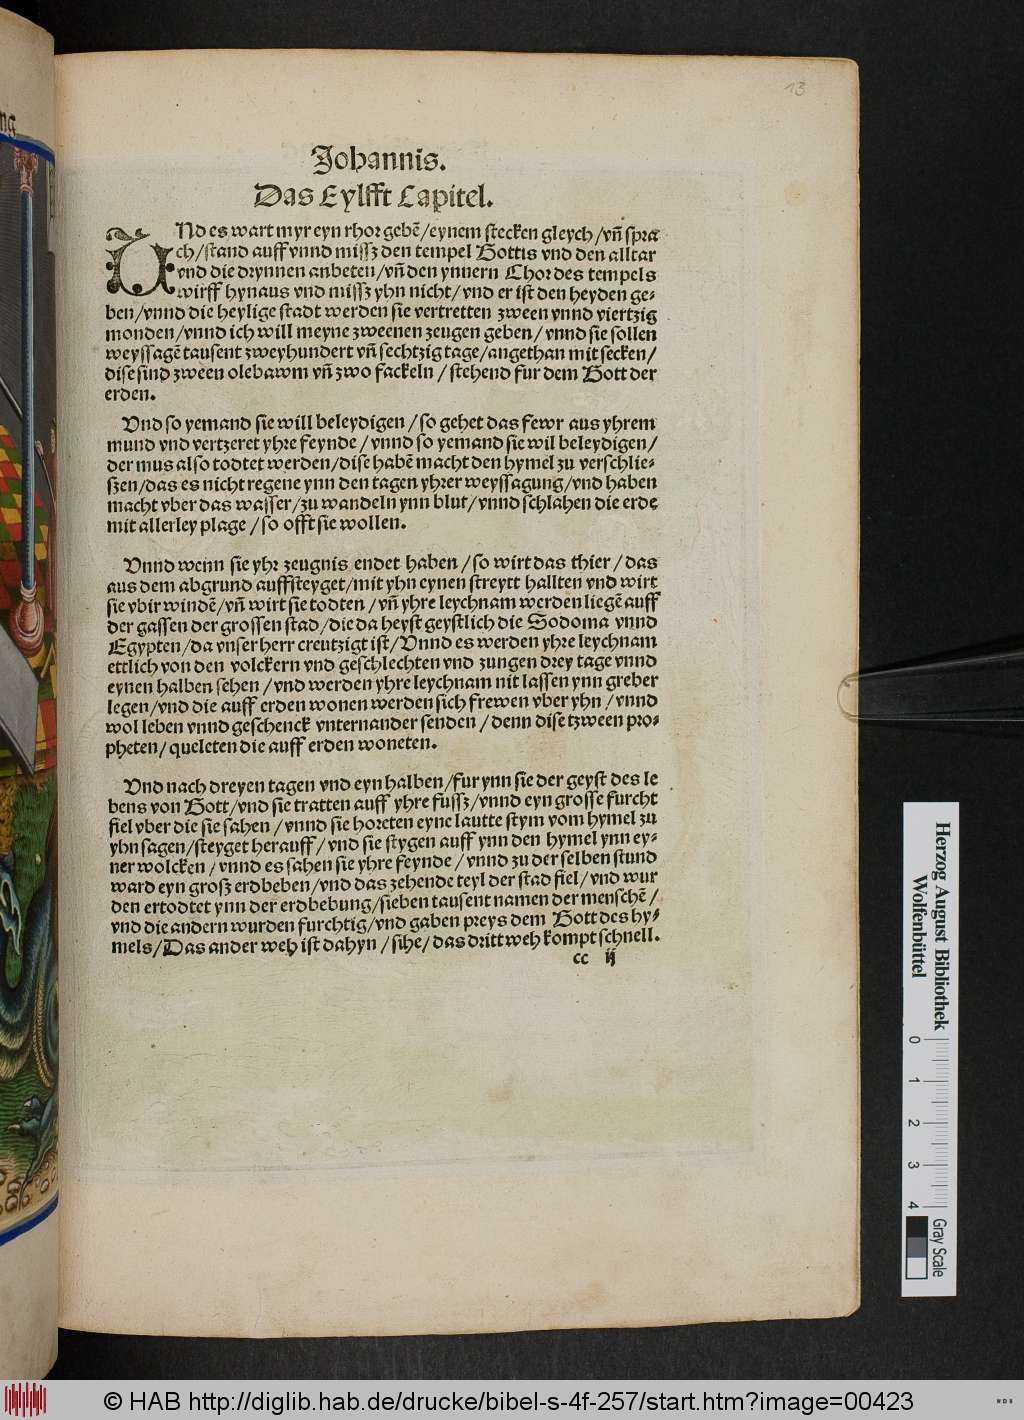 13
Johannis.
Das Eylfft Capitel.
VNd es wart myr eyn rhor gebē/eynem stecken gleych/vñ spra
ch/stand auff vnnd missz den tempel Gottis vnd den alltar
vnd die drynnen anbeten/vñ den ynnern Chor des tempels
wirff hynaus vnd missz yhn nicht/vnd er ist den heyden ge-
ben/vnnd die heylige stadt werden sie vertretten zween vnnd viertzig
monden/vnnd ich will meyne zweenen zeugen geben/vnnd sie sollen
weyssagē tausent zweyhundert vñ sechtzig tage/angethan mit secken/
dise sind zween olebawm vñ zwo fackeln/stehend fur dem Gott der
erden.
Vnd so yemand sie will beleydigen/so gehet das fewr aus yhrem
mund vnd vertzeret yhre feynde/vnnd so yemand sie wil beleydigen/
der mus also todtet werden/dise habē macht den hymel zu verschlie-
szen/das es nicht regene ynn den tagen yhrer weyssagung/vnd haben
macht vber das wasser/zu wandeln ynn blut/vnnd schlahen die erde
mit allerley plage/so offt sie wollen.
Vnnd wenn sie yhr zeugnis endet haben/so wirt das thier/das
aus dem abgrund auffsteyget/mit yhn eynen streytt hallten vnd wirt
sie vbir windē/vñ wirt sie todten/vñ yhre leychnam werden liegē auff
der gassen der grossen stad/die da heyst geystlich die Sodoma vnnd
Egypten/da vnser herr creutzigt ist/Vnnd es werden yhre leychnam
ettlich von den volckern vnd geschlechten vnd zungen drey tage vnnd
eynen halben sehen/vnd werden yhre leychnam nit lassen ynn greber
legen/vnd die auff erden wonen werden sich frewen vber yhn/vnnd
wol leben vnnd geschenck vnternander senden/denn dise tzween pro-
pheten/queleten die auff erden woneten.
Vnd nach dreyen tagen vnd eyn halben/fur ynn sie der geyst des le
bens von Gott/vnd sie tratten auff yhre fussz/vnnd eyn grosse furcht
fiel vber die sie sahen/vnnd sie horeten eyne lautte stym vom hymel zu
yhn sagen/steyget herauff/vnd sie stygen auff ynn den hymel ynn ey-
ner wolcken/vnnd es sahen sie yhre feynde/vnnd zu der selben stund
ward eyn grosz erdbeben/vnd das zehende teyl der stad fiel/vnd wur
den ertodtet ynn der erdbebung/sieben tausent namen der menschē/
vnd die andern wurden furchtig/vnd gaben preys dem Gott des hy-
mels/Das ander weh ist dahyn/sihe/das dritt weh kompt schnell.
cc ij
Herzog August Bibliothek
Wolfenbüttel
0 1 2 3 4
Gray Scale
© HAB http://diglib.hab.de/drucke/bibel-s-4f-257/start.htm?image=00423